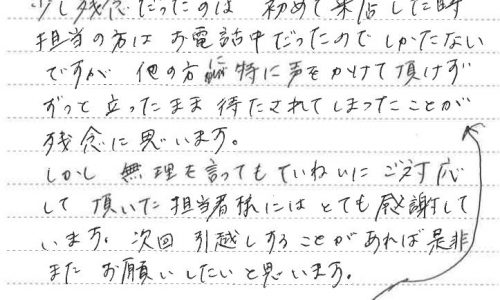 少し残念だったのは 初めて来店した時
担当の方は お電話中だったので しかたない
ですが 他の方に特に声をかけて頂けず
ずっと立ったまま 待たされてしまったことが
残念に思います。
しかし 無理を言っても ていねいに ご対応
して 頂いた 担当者様には とても感謝して
います。次回 引越しすることがあれば是非
また お願いしたいと思います。